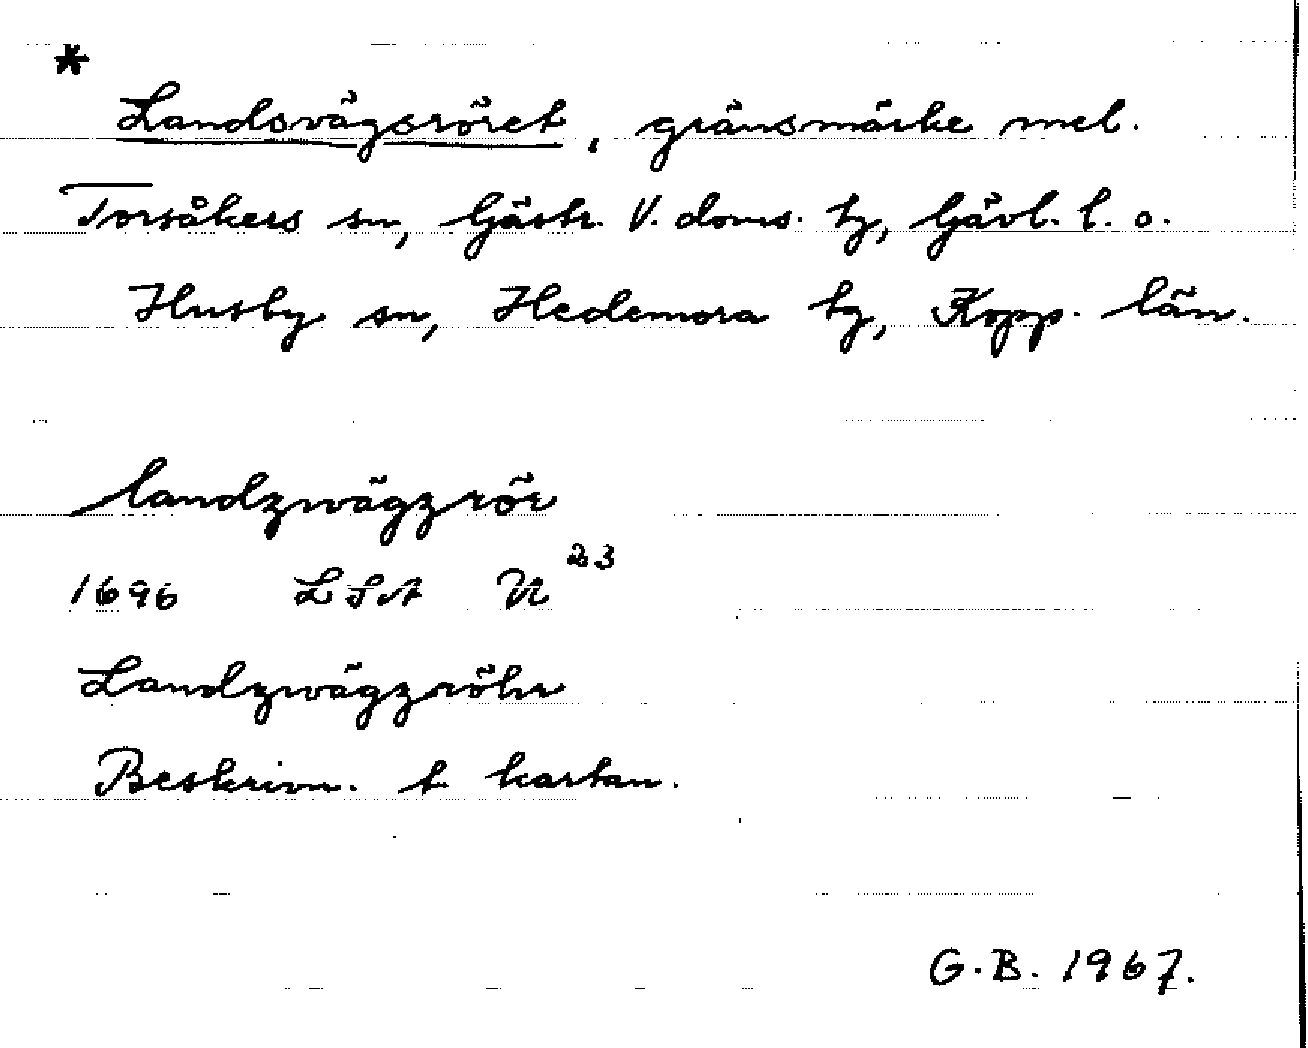 *
Landsvägsröret, gränsmärke mel.
Torsåkers sn, Gästr. V. doms. tg, Gävl. l. o.
Husby sn, Hedemora tg, Kopp. län.
landzwägzrör
1696 LSA U²³
Landzwägzröhr
Beskrivn. t kartan.
G.B. 1967.